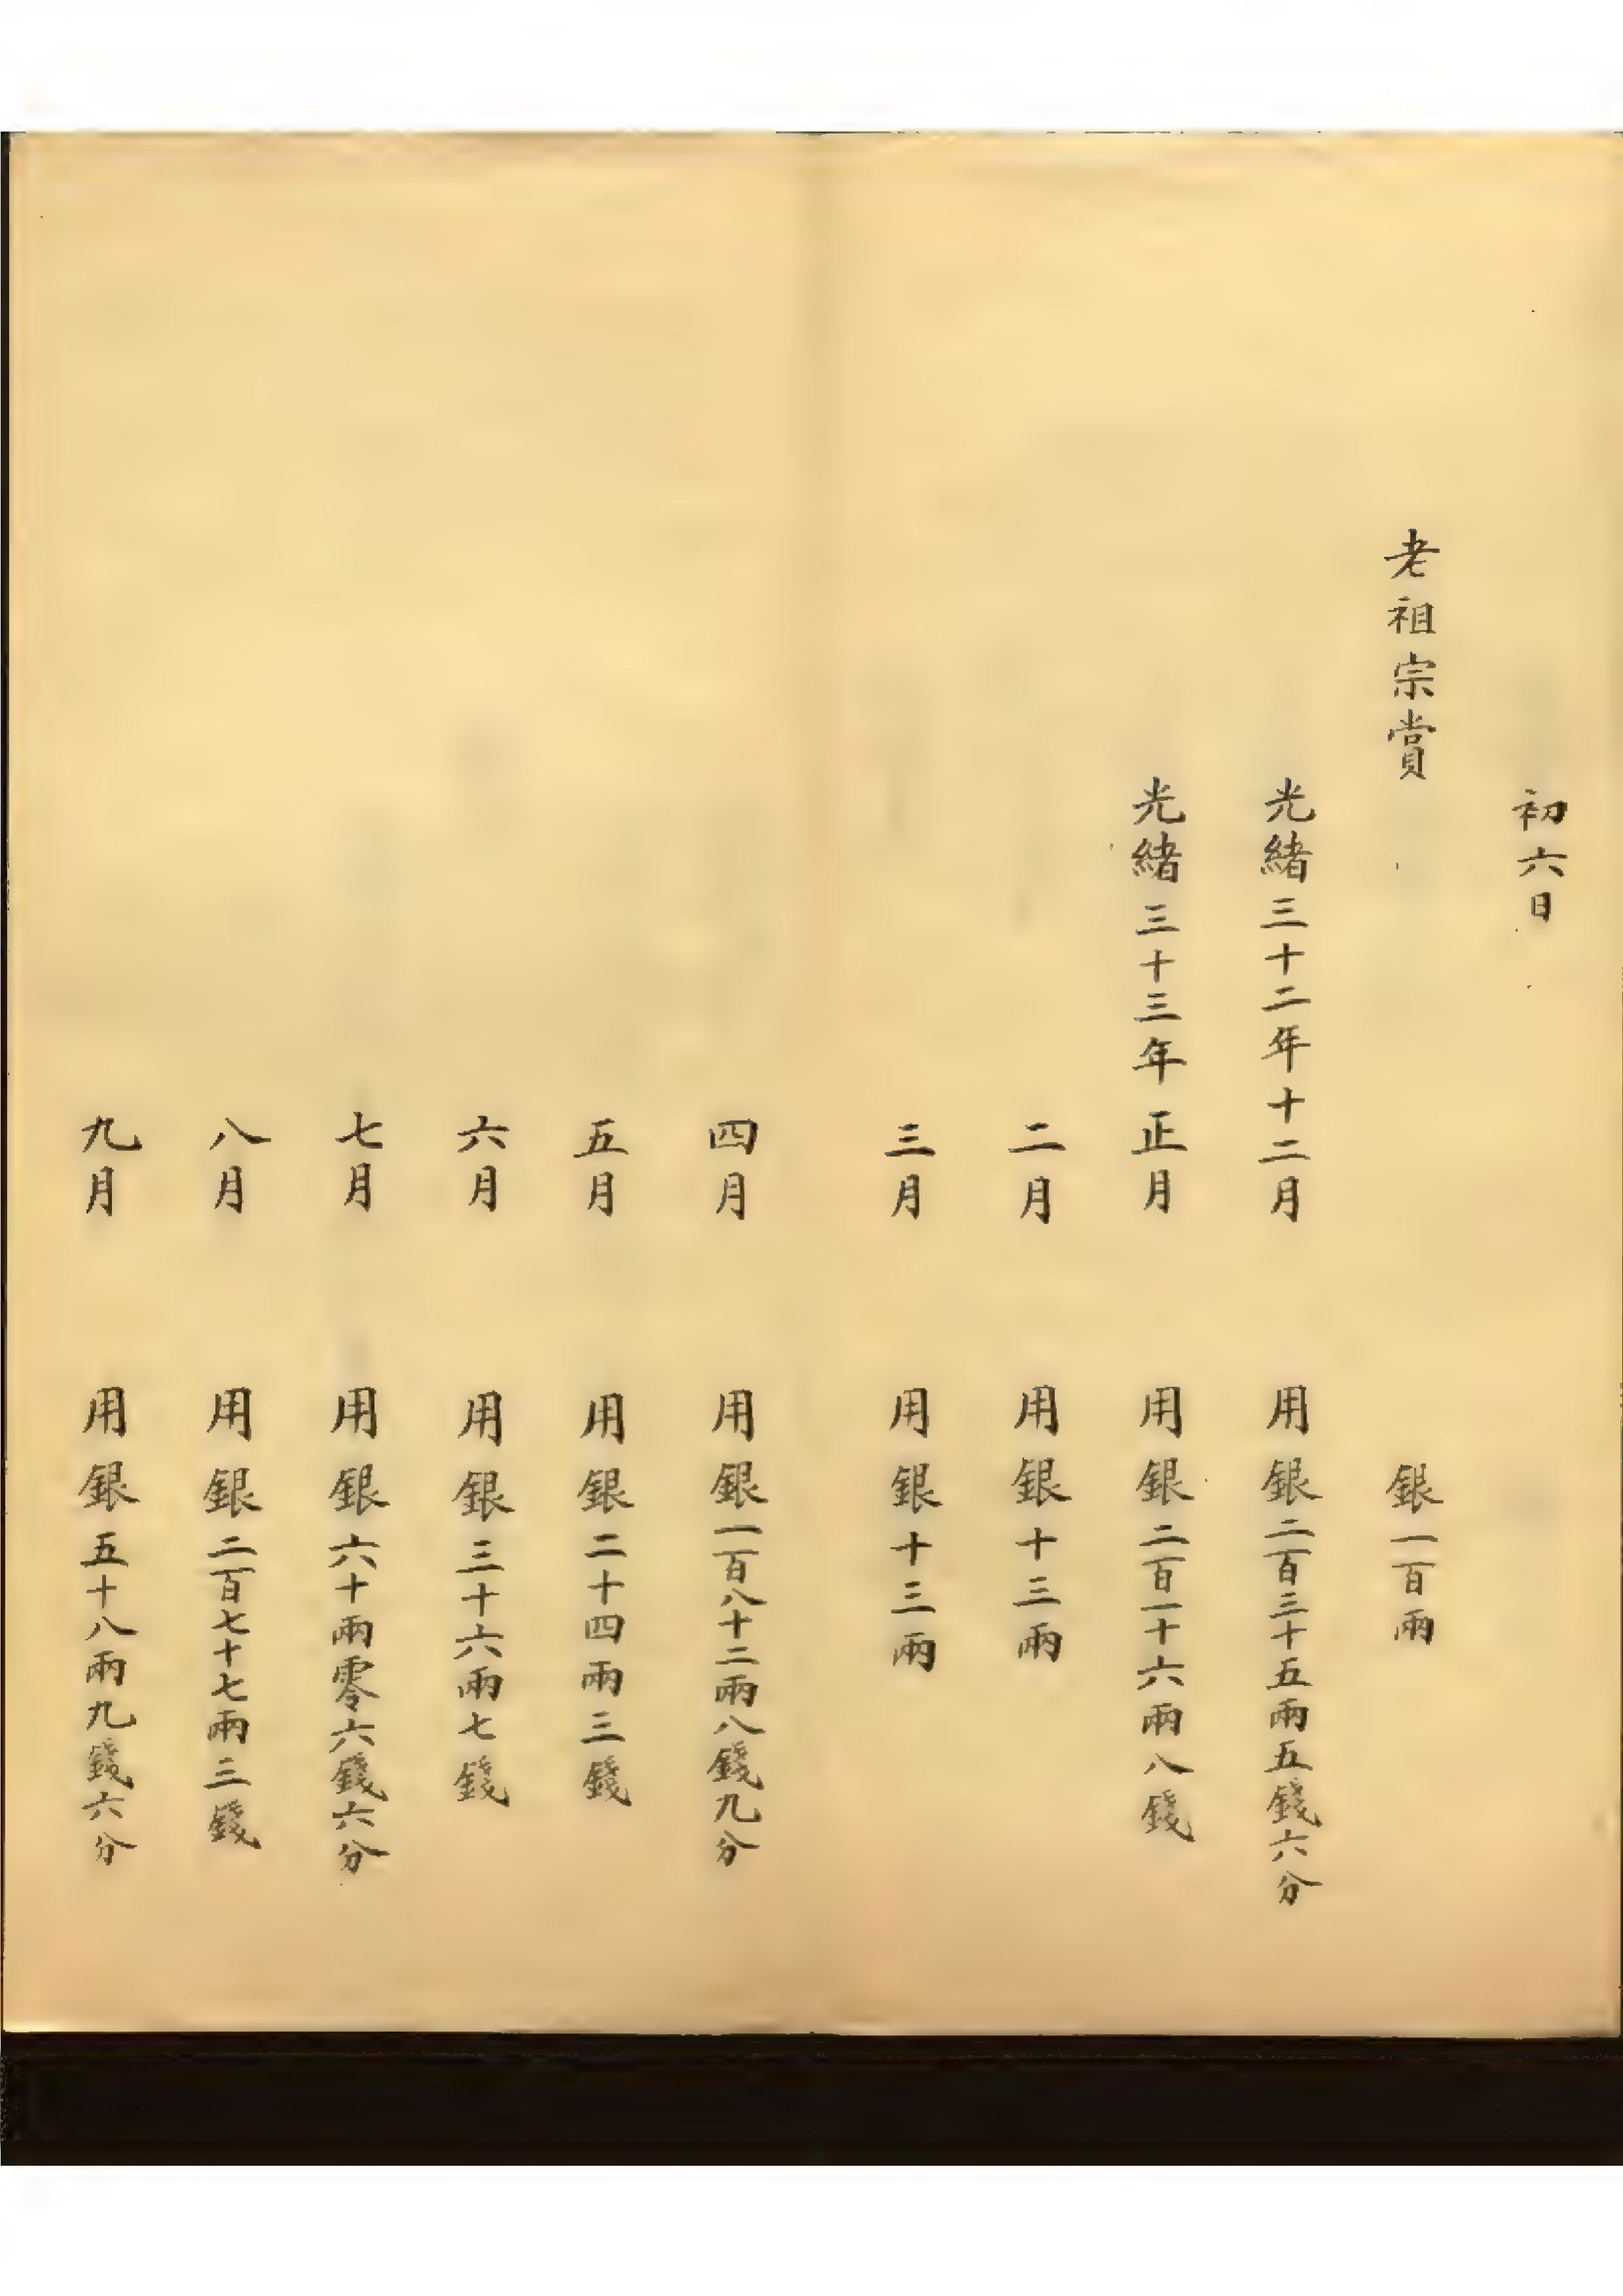 初六日
老祖宗賞 銀一百兩
光緒三十二年十二月 用銀二百三十五兩五錢六分
光緒三十三年正月 用銀二百一十六兩八錢
二月 用銀十三兩
三月 用銀十三兩
四月 用銀一百八十二兩八錢九分
五月 用銀二十四兩三錢
六月 用銀三十六兩七錢
七月 用銀六十兩零六錢六分
八月 用銀二百七十七兩三錢
九月 用銀五十八兩九錢六分